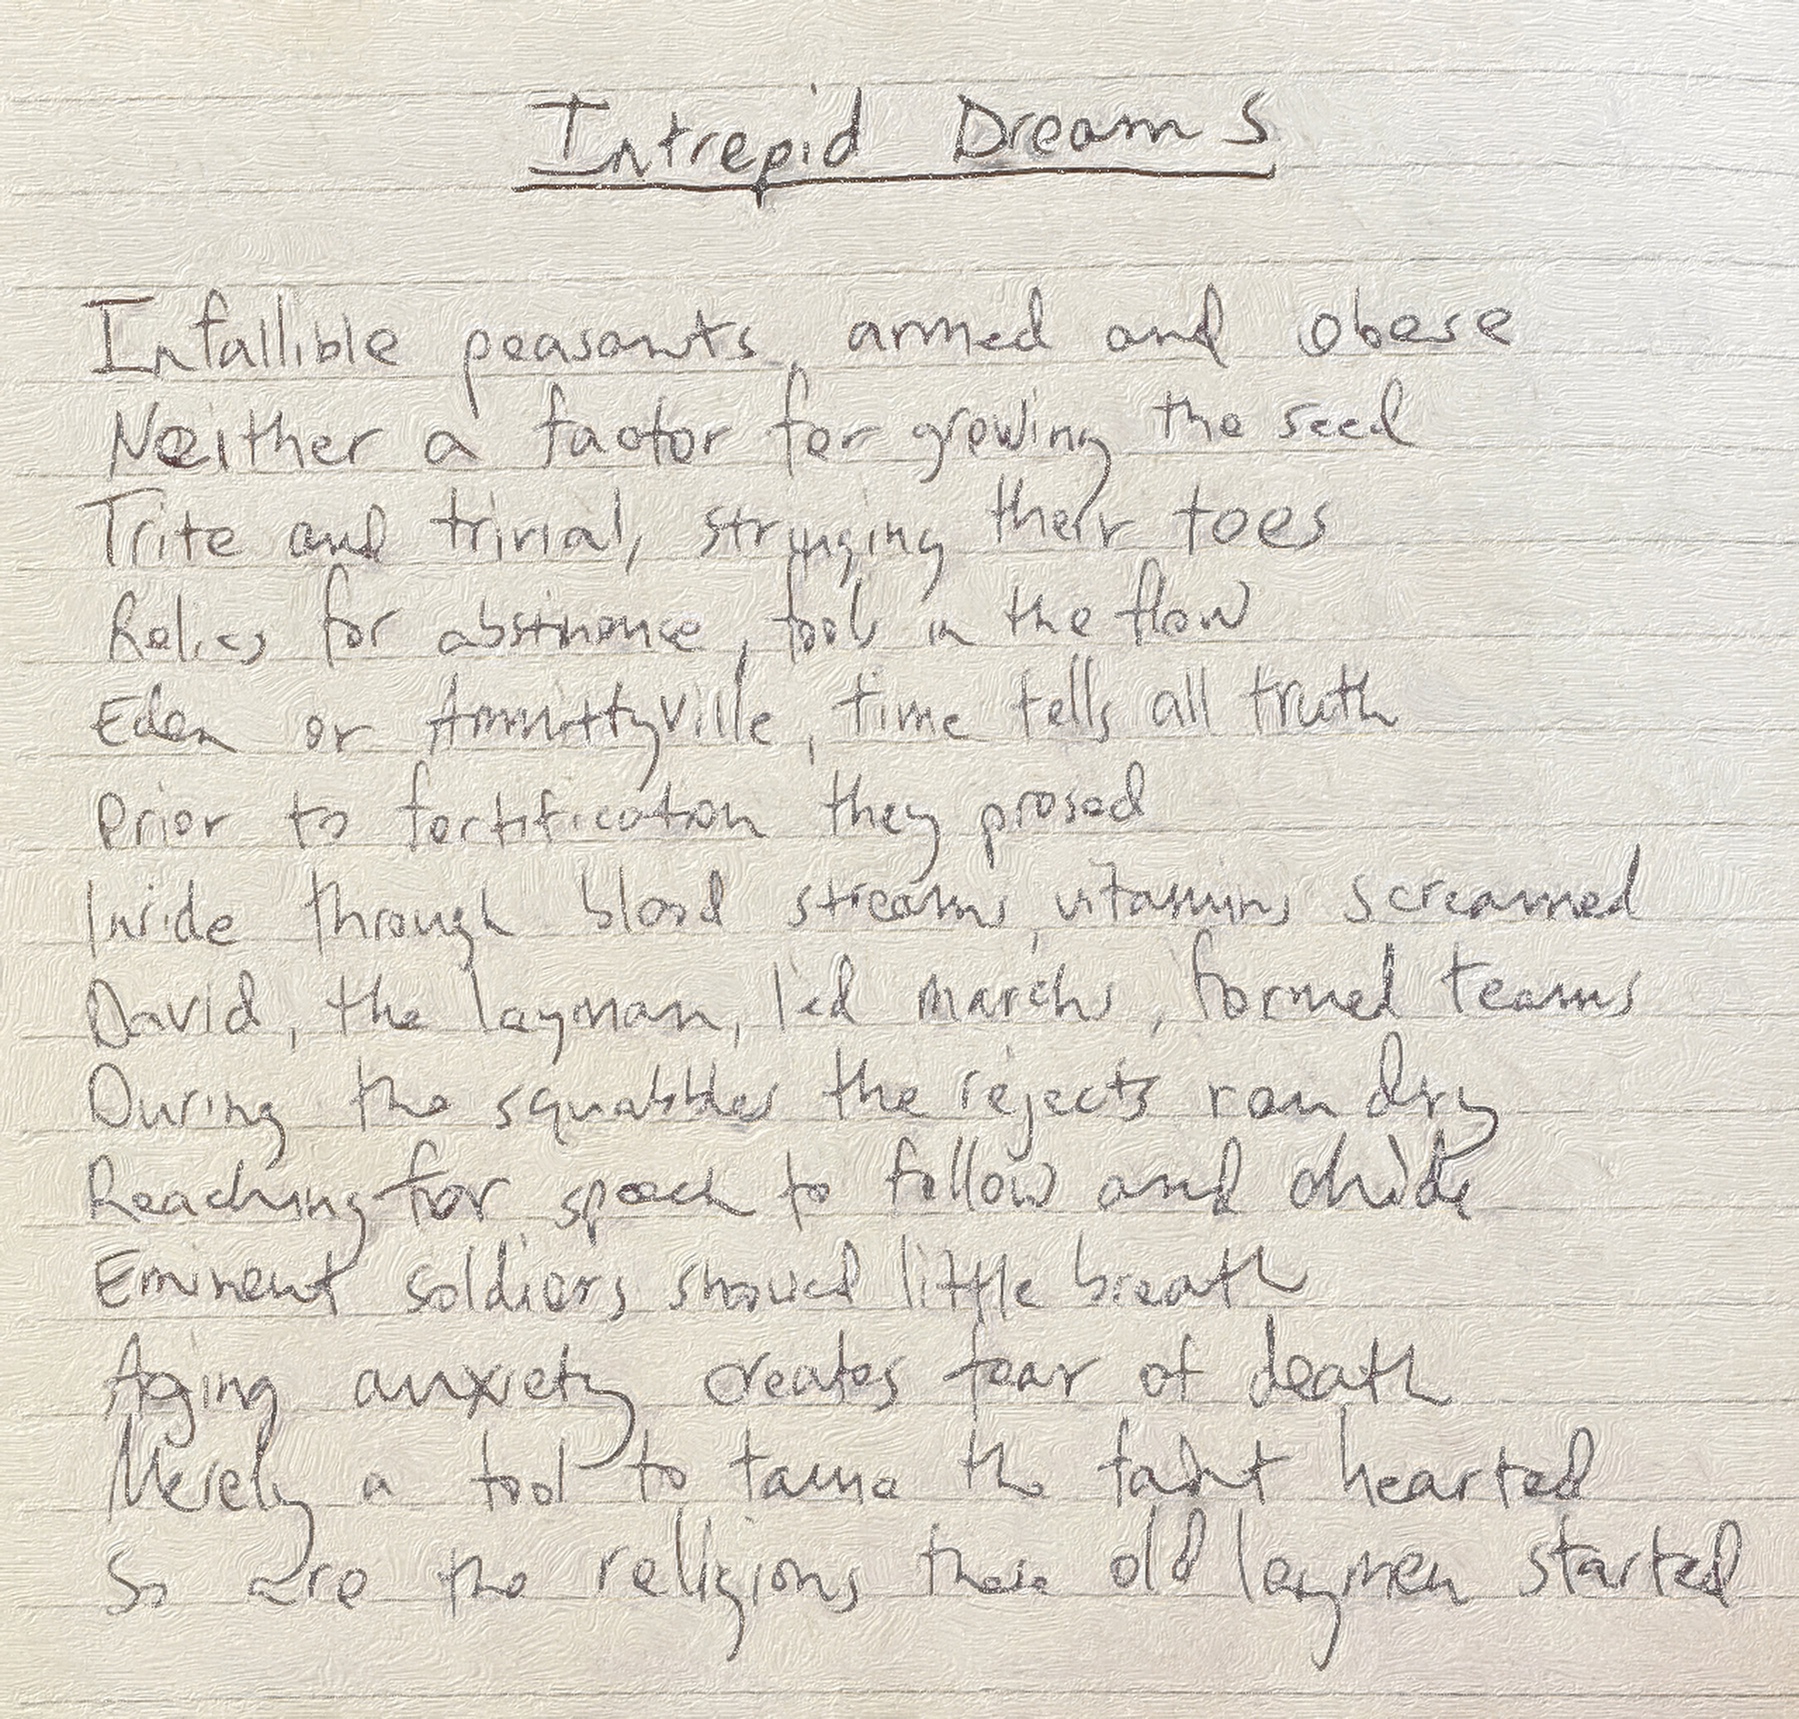 Intrepid Dreams
Infallible peasants, armed and obese
Neither a factor for growing the seed
Trite and trivial, stringing their toes
Relics for abstinence, tools in the flow
Eden or Ammittyville, time tells all truth
Prior to fortification they prosed
Inside through blood streams, vitamins screamed
David, the layman, led marchs, formed teams
During the squabbles the rejects ran dry
Reaching for speech to follow and
Eminent soldiers showed little breath
Aging anxiety creates fear of death
Merely a tool to tame the faint hearted
So are the religions these old laymen started